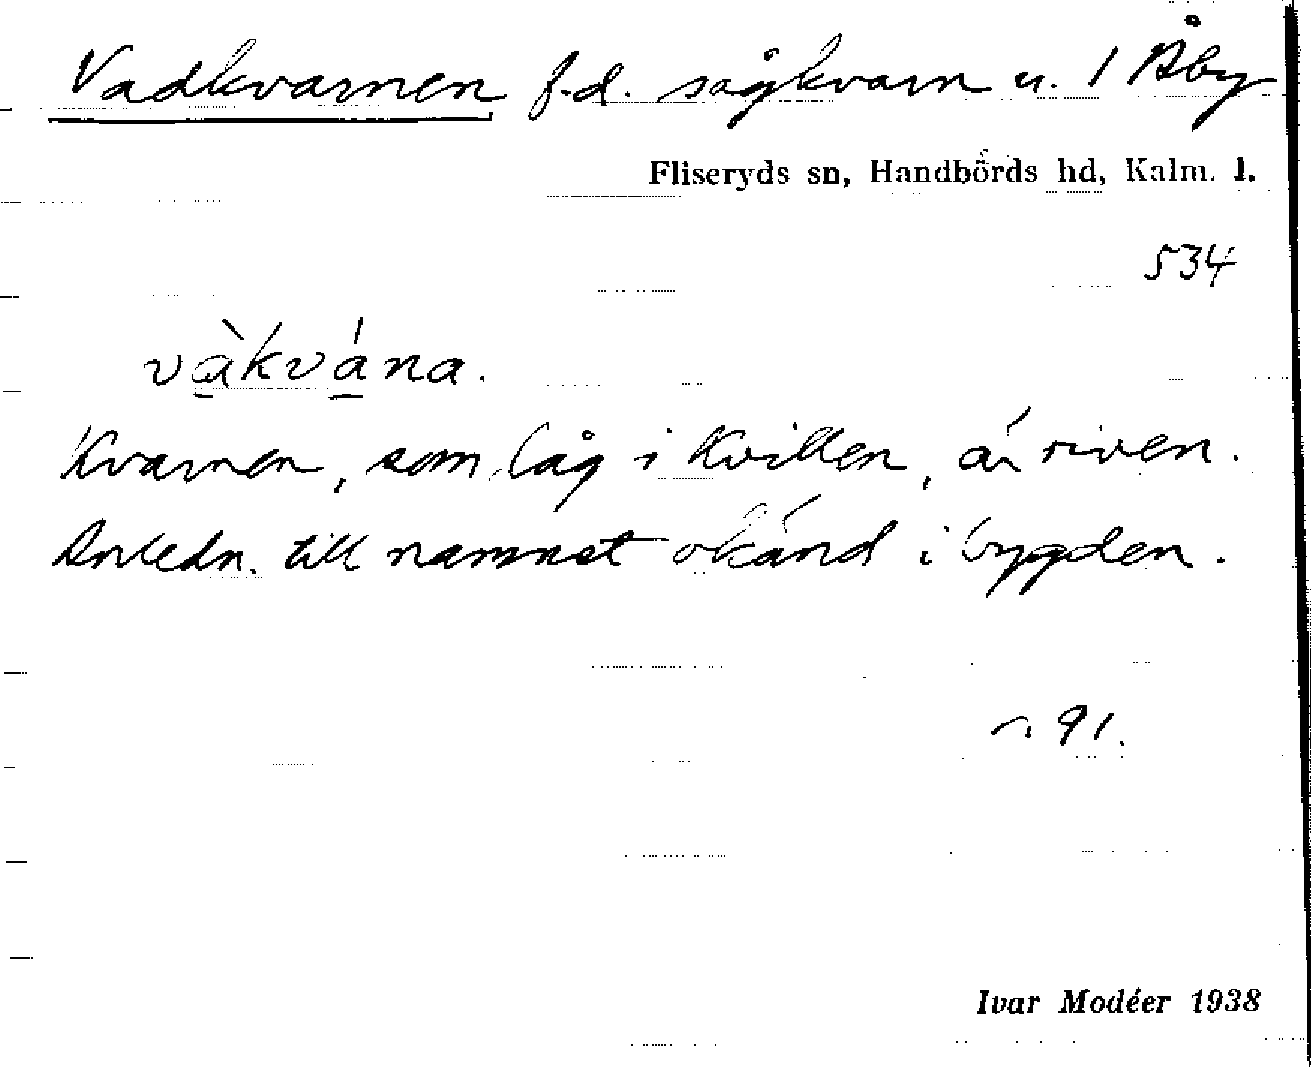 Vadkvarnen f.d. sågkvarn u. 1 Åby
Fliseryds sn, Handbörds hd, Kalm. l.
534
và̲kvá̲na.
Kvarnen, som låg i Kvillen, är riven.
Anledn. till namnet okänd i bygden.
91.
Ivar Modéer 1938